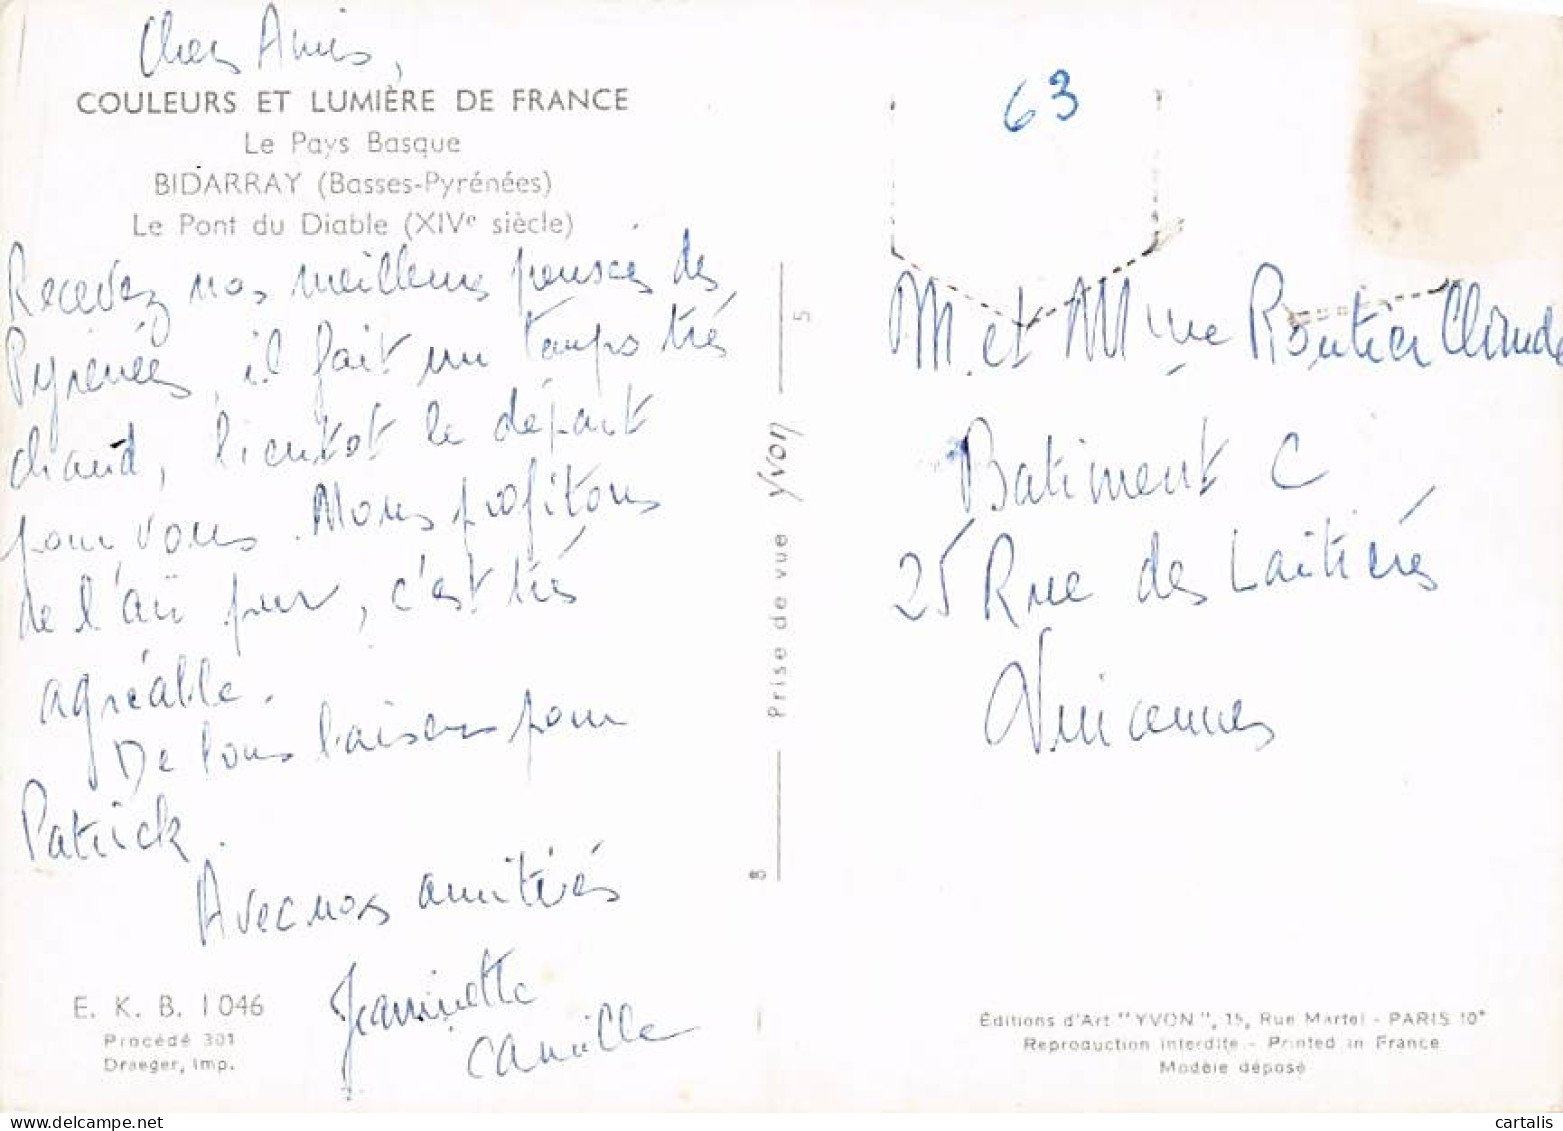 Chers Amis,
COULEURS ET LUMIÈRE DE FRANCE
Le Pays Basque
BIDARRAY (Basses-Pyrénées)
Le Pont du Diable (XIVe siècle)
Recevez nos meilleures pensées des
Pyrénées, il fait un temps trés
chaud, bientot le départ
pour vous. Nous profitons
de l'air pur, c'est trés
agréable.
De bons baisers pour
Patrick.
Avec nos amitiés
Jeanninette
Camille
E. K. B. 1046
Procédé 301
Draeger, imp.
8 Prise de vue Yvon 5
63
M. et Mme Routier Claude
Batiment C
25 Rue des Laitiéres
Vincennes
Éditions d'Art "YVON", 15, Rue Martel - PARIS 10e
Reproduction interdite - Printed in France
Modèle déposé
cartalis